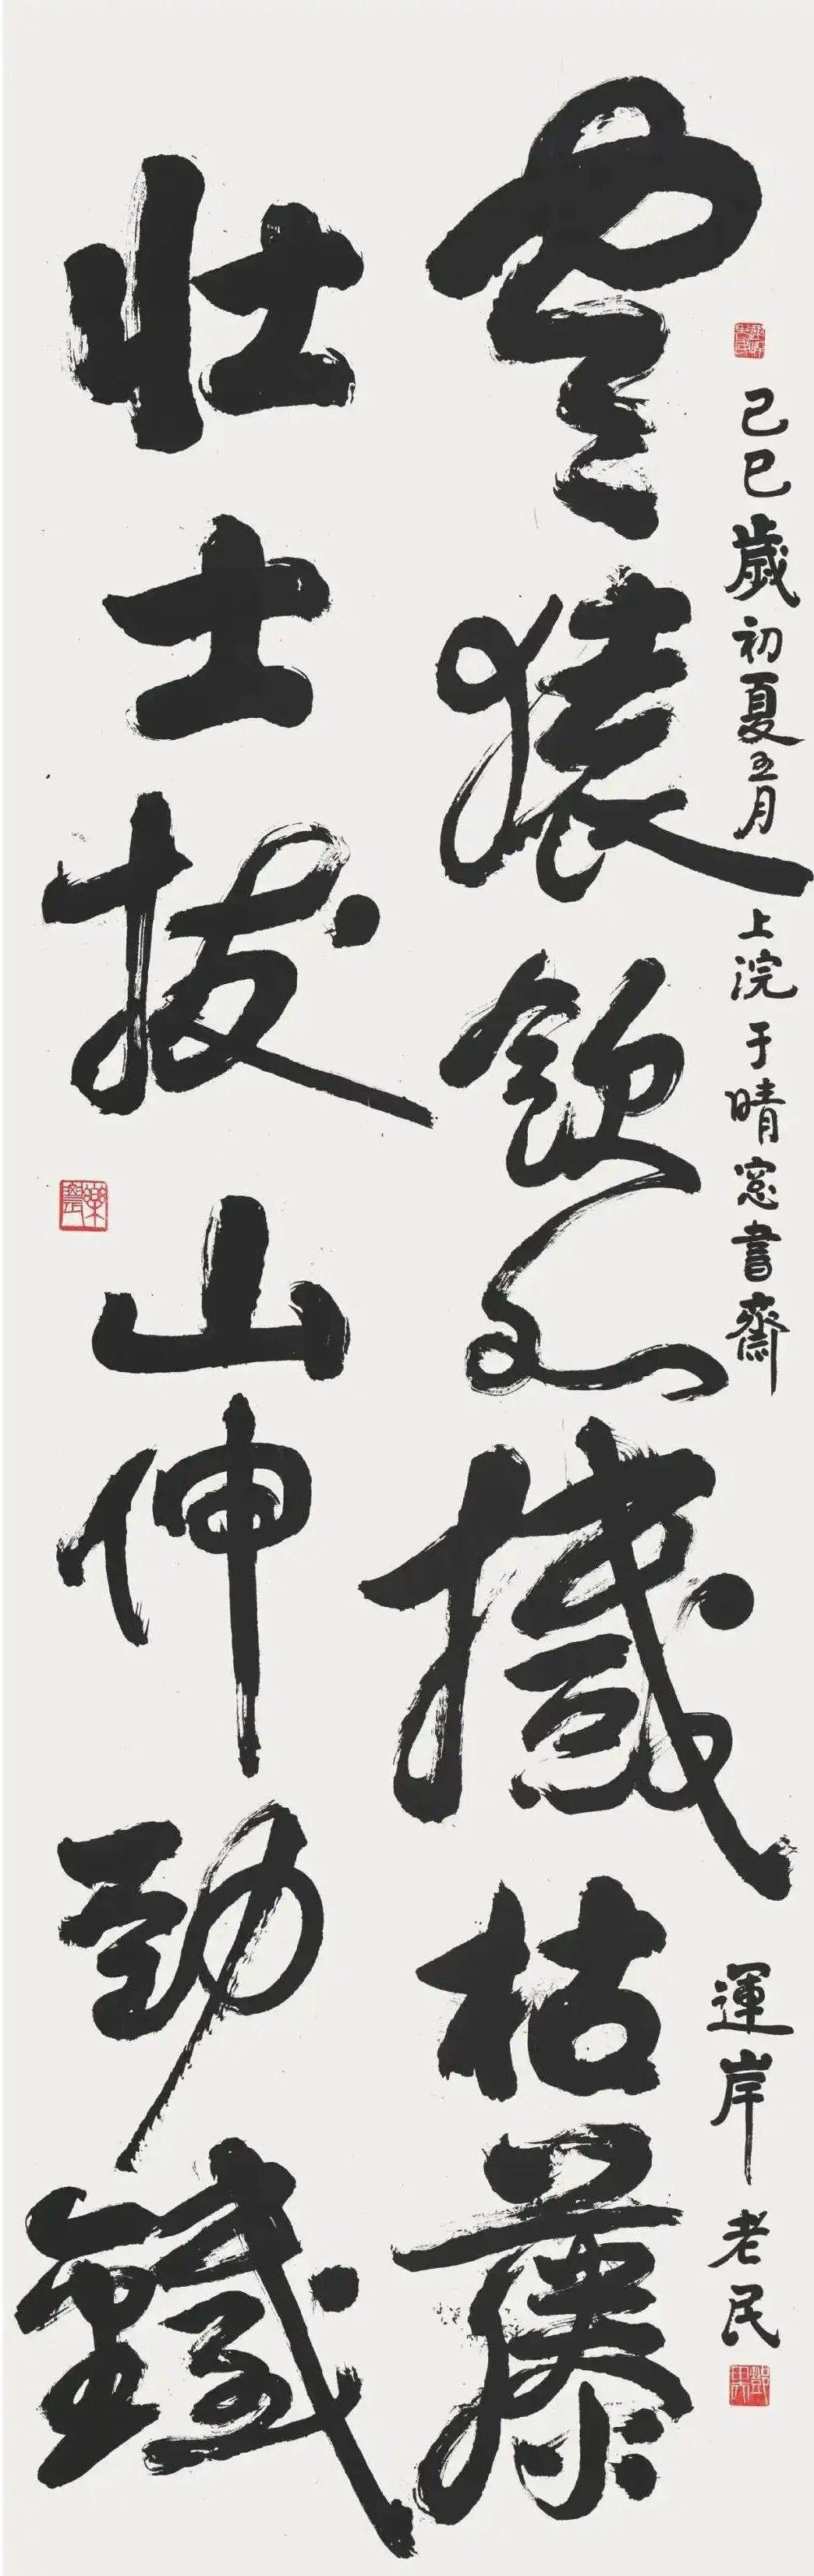 己巳歲初夏五月上浣于晴窓書齋 運岸老民
寒猿飲水撼枯藤
壯士拔山伸勁鐵